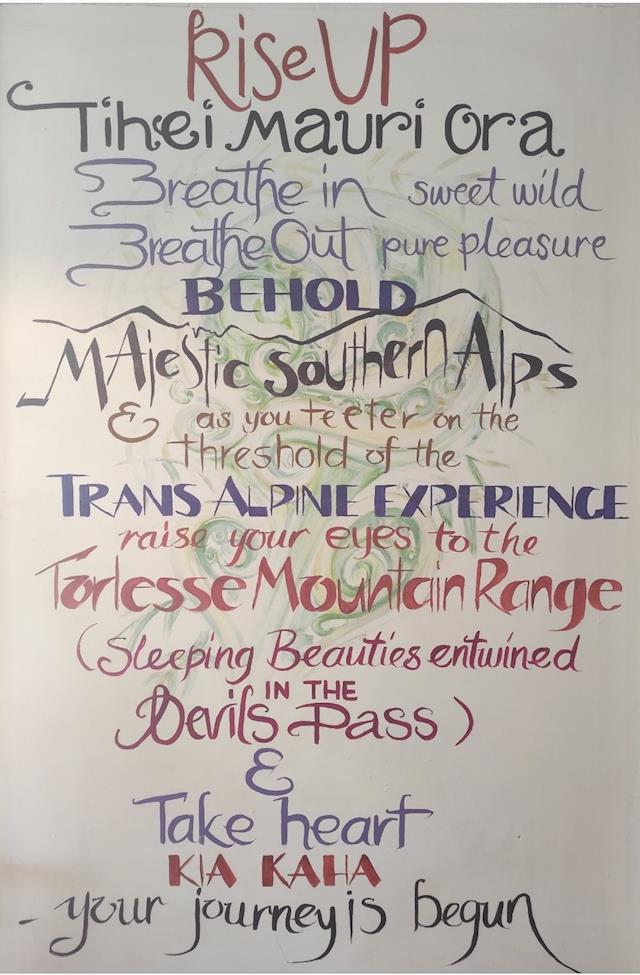 Rise UP
Tihei Mauri Ora
Breathe in sweet wild
Breathe Out pure pleasure
BEHOLD
MAjestic Southern Alps
& as you teeter on the
threshold of the
TRANS ALPINE EXPERIENCE
raise your eyes to the
Torlesse Mountain Range
(Sleeping Beauties entwined
IN THE
Devils Pass)
&
Take heart
KIA KAHA
- your journey is begun